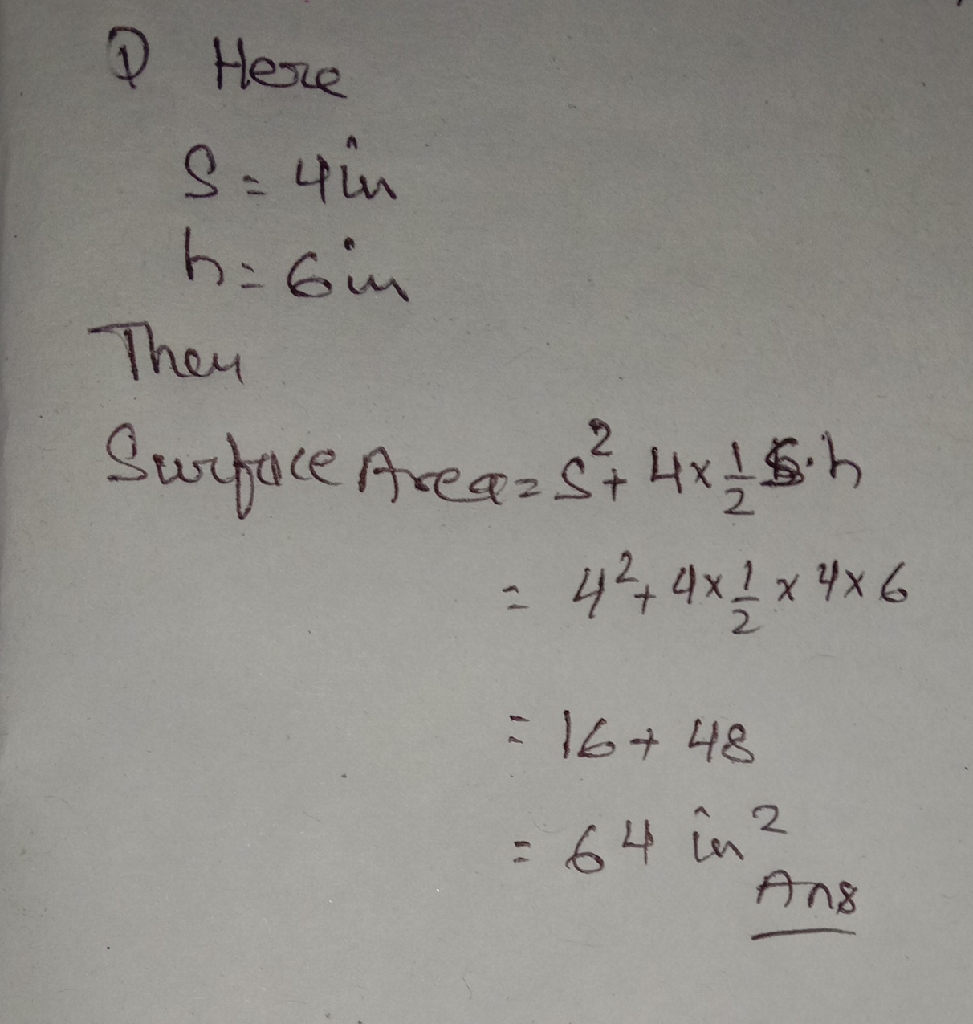 ① Here
S = 4 in
h = 6 in
Then
Surface Area = S² + 4 × 1/2 S·h
= 4² + 4 × 1/2 × 4 × 6
= 16 + 48
= 64 in²
Ans